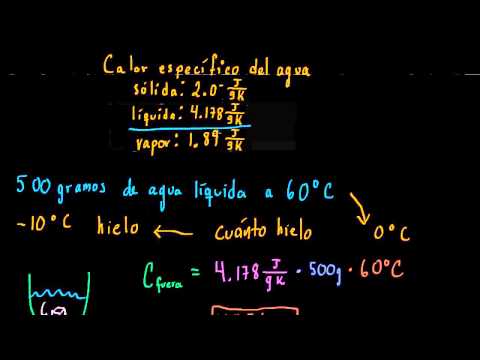 Calor específico del agua
sólida: 2.0 J/gK
líquida: 4.178 J/gK
vapor: 1.89 J/gK
500 gramos de agua líquida a 60°C
-10°C hielo ← cuánto hielo 0°C
C fuera = 4.178 J/gK · 500g · 60°C